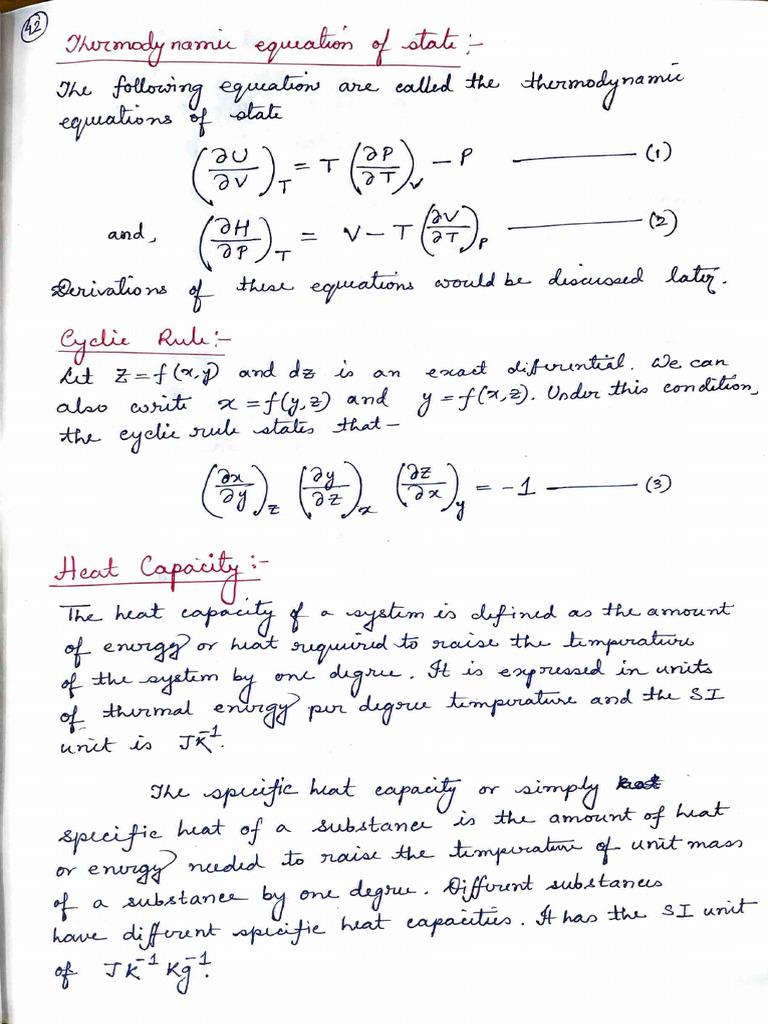 42
Thermodynamic equation of state:-
The following equations are called the thermodynamic
equations of state
(∂U/∂V)_T = T (∂P/∂T)_V - P ——— (1)
and, (∂H/∂P)_T = V - T (∂V/∂T)_P ——— (2)
Derivations of these equations would be discussed later.
Cyclic Rule:-
Let z = f(x,y) and dz is an exact differential. We can
also write x = f(y,z) and y = f(x,z). Under this condition,
the cyclic rule states that -
(∂x/∂y)_z (∂y/∂z)_x (∂z/∂x)_y = -1 ——— (3)
Heat Capacity:-
The heat capacity of a system is defined as the amount
of energy or heat required to raise the temperature
of the system by one degree. It is expressed in units
of thermal energy per degree temperature and the SI
unit is JK⁻¹.
The specific heat capacity or simply
specific heat of a substance is the amount of heat
or energy needed to raise the temperature of unit mass
of a substance by one degree. Different substances
have different specific heat capacities. It has the SI unit
of JK⁻¹ Kg⁻¹.